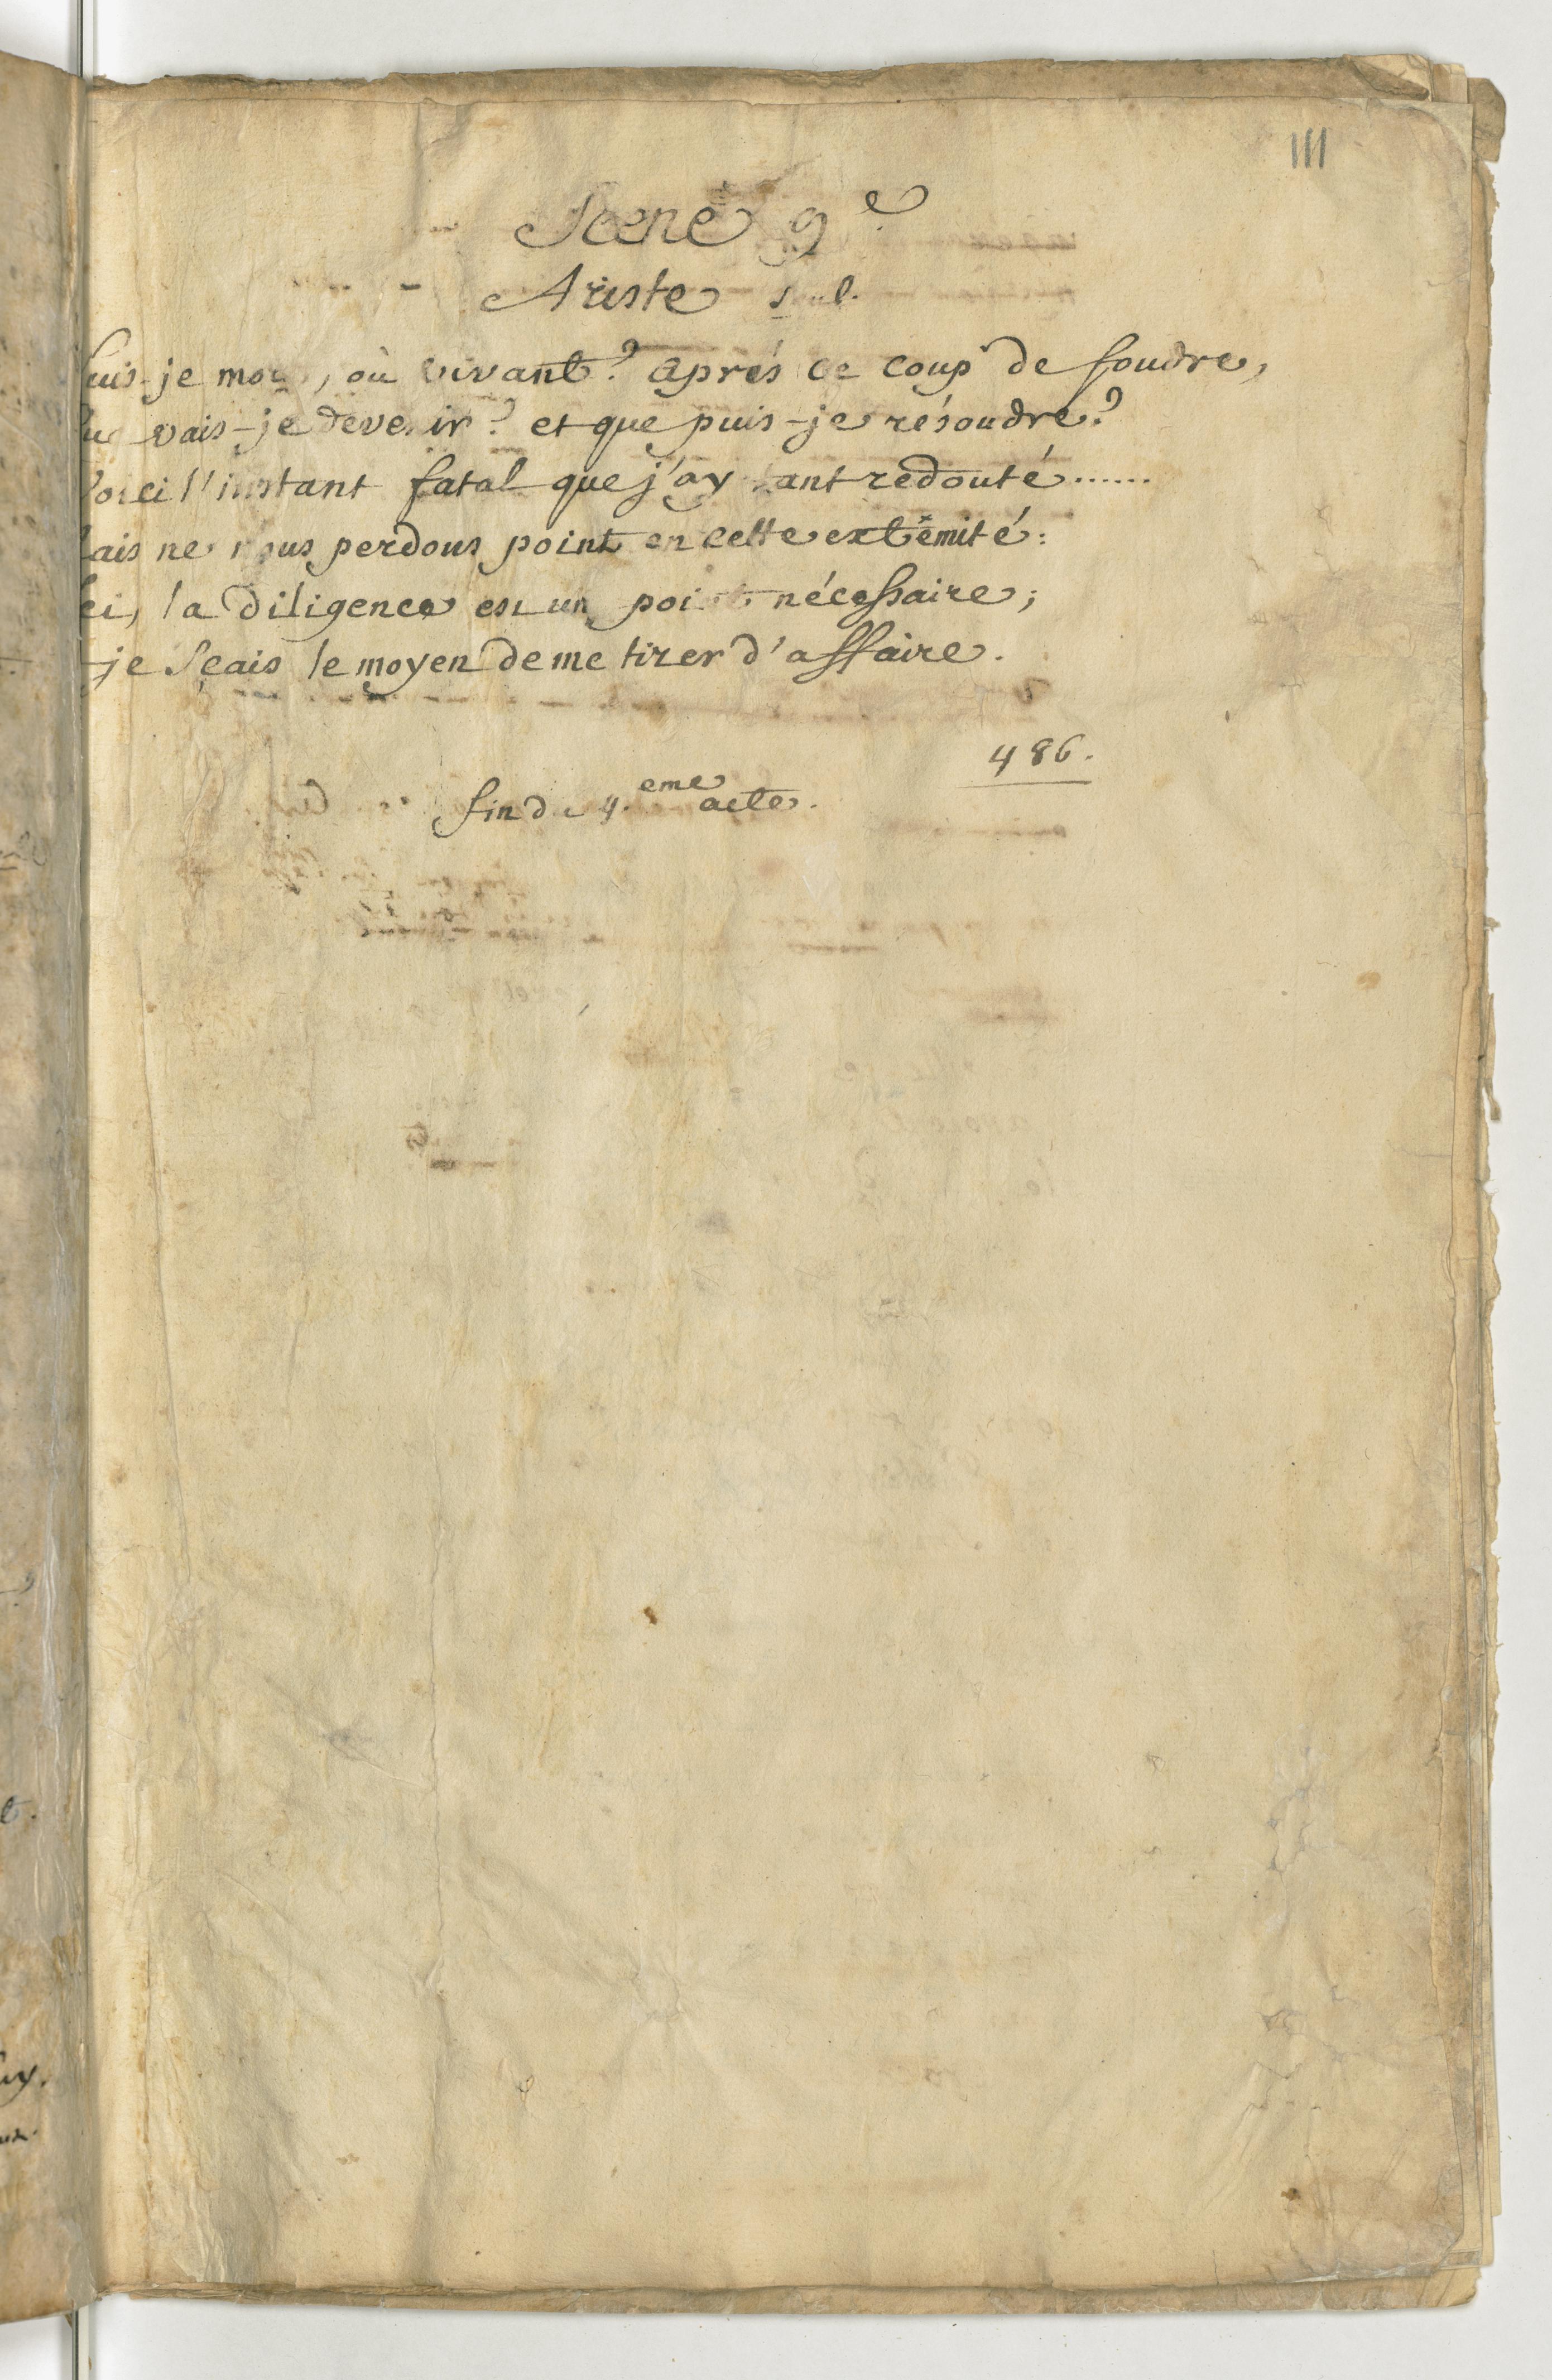 111
Scene 9.e
Ariste seul.
suis-je mort, où vivant? aprés ce coup de foudre,
que vais-je devenir? et que puis-je résoudre?
Voici l'instant fatal que j'ay tant redouté......
Mais ne nous perdons point en cette extêmité:
ici, la diligence est un point nécessaire;
je sçais le moyen de me tirer d'affaire.
486.
fin du 4.eme acte.